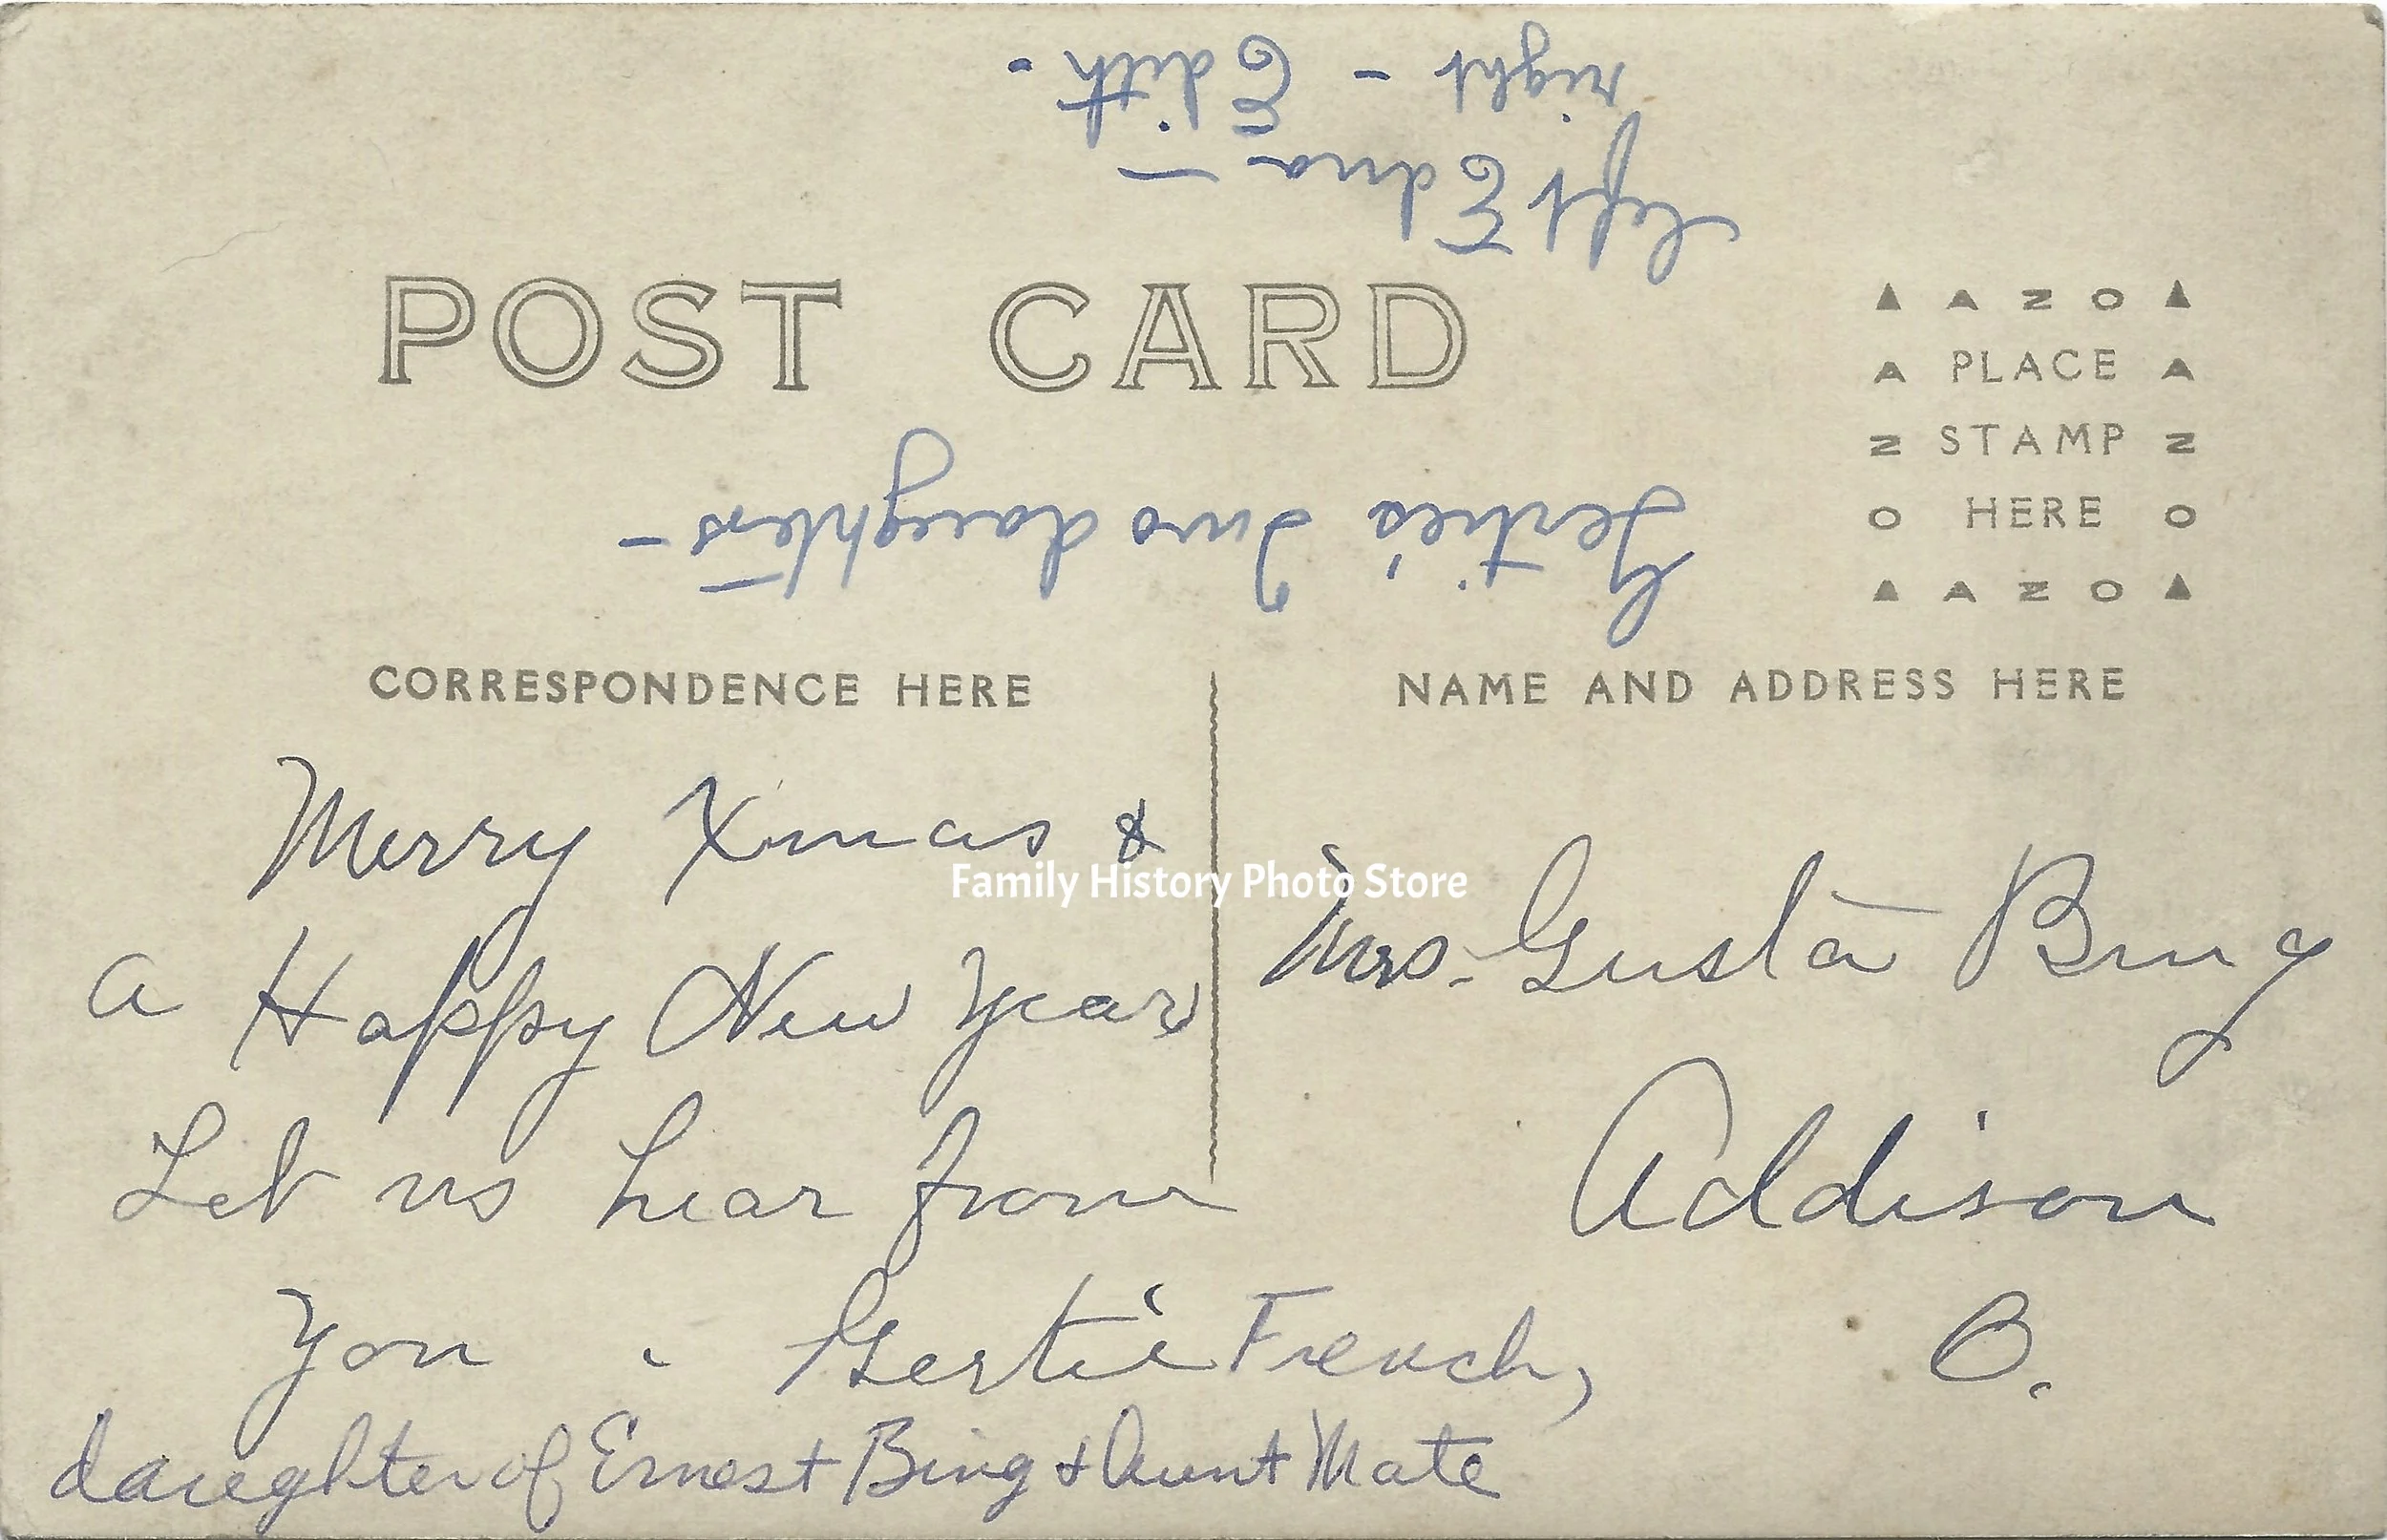 Gertie's Two daughters-
left Edna-
right - Edith.
POST CARD
AZO
PLACE
STAMP
HERE
AZO
CORRESPONDENCE HERE
NAME AND ADDRESS HERE
Merry Xmas &
a Happy New Year
Let us hear from
you. Gertie French,
daughter of Ernest Bing & Aunt Mate
Mrs. Gusta Bing
Addison
O.
Family History Photo Store